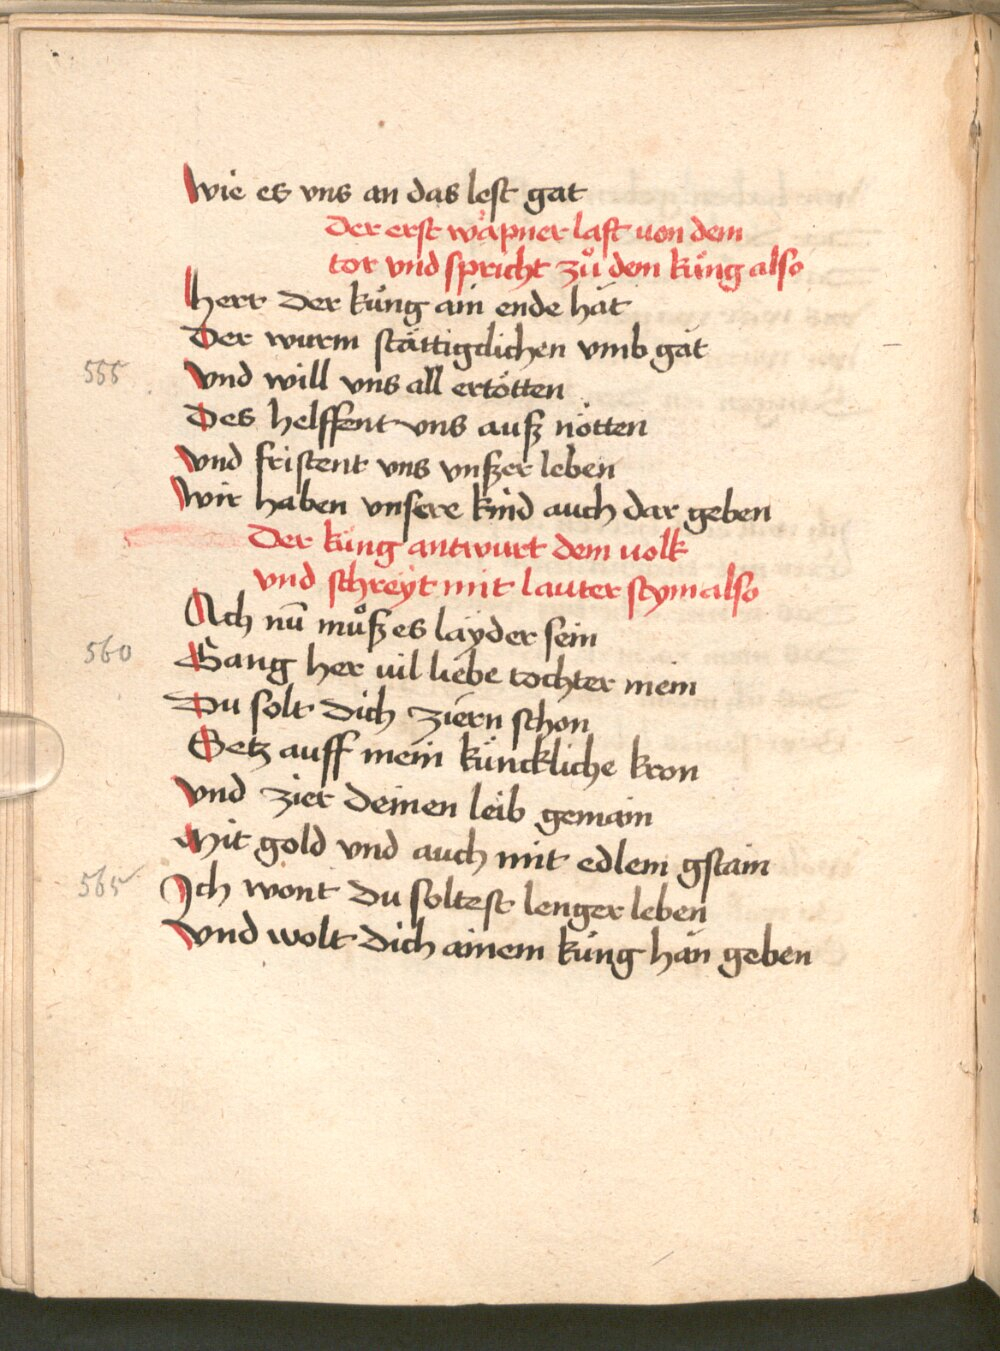 Wie es vns an das lest gat
Der erst wäpner last von dem
tor vnd spricht zů dem küng also
Herr der küng ain ende hät
Der wurm stättigclichen vmb gat
555 Vnd will vns all ertötten
Des helffent vns auſz nötten
Vnd fristent vns vnſzer leben
Wir haben vnsere kind auch dar geben
Der küng antwurt dem uolk
vnd schreÿt mit lauter stym also
Ach nū můſz es laÿder sein
560 Gang her uil liebe tochter mein
Du solt dich ziern schon
Setz auff mein künckliche kron
Vnd zier deinen leib gemain
Mit gold vnd auch mit edlem gstain
565 Ich wont du soltest lenger leben
Vnd wolt dich ainem küng han geben